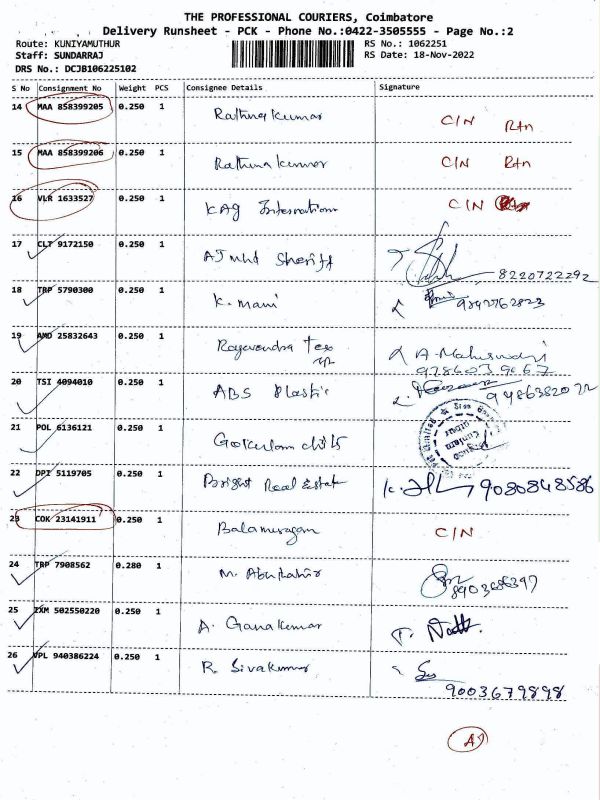 THE PROFESSIONAL COURIERS, Coimbatore
Delivery Runsheet - PCK - Phone No.:0422-3505555 - Page No.:2
Route: KUNIYAMUTHUR RS No.: 1062251
Staff: SUNDARRAJ RS Date: 18-Nov-2022
DRS No.: DCJB106225102
S No Consignment No Weight PCS Consignee Details Signature
14 MAA 858399205 0.250 1 Rathna kumar C/N Rtn
15 MAA 858399206 0.250 1 Rathna kumar C/N Rtn
16 VLR 1633527 0.250 1 KAG International C/N
17 CLT 9172150 0.250 1 AJ Mhd Sheriff 8220722292
18 TRP 5790300 0.250 1 K. Mani
19 AMD 25832643 0.250 1 Ragavendra Tex A. Maheswari
9786039067
20 TSI 4094010 0.250 1 ABS Plastic
21 POL 6136121 0.250 1 Gokulam chits
22 DPI 5119705 0.250 1 Bright Real Estate 9080848586
23 COK 23141911 0.250 1 Balamurugan C/N
24 TRP 7908562 0.280 1 M. Abutahir
25 IXM 502550220 0.250 1 A. Gana kumar
26 VPL 940386224 0.250 1 R. Sivakumar
9003679898